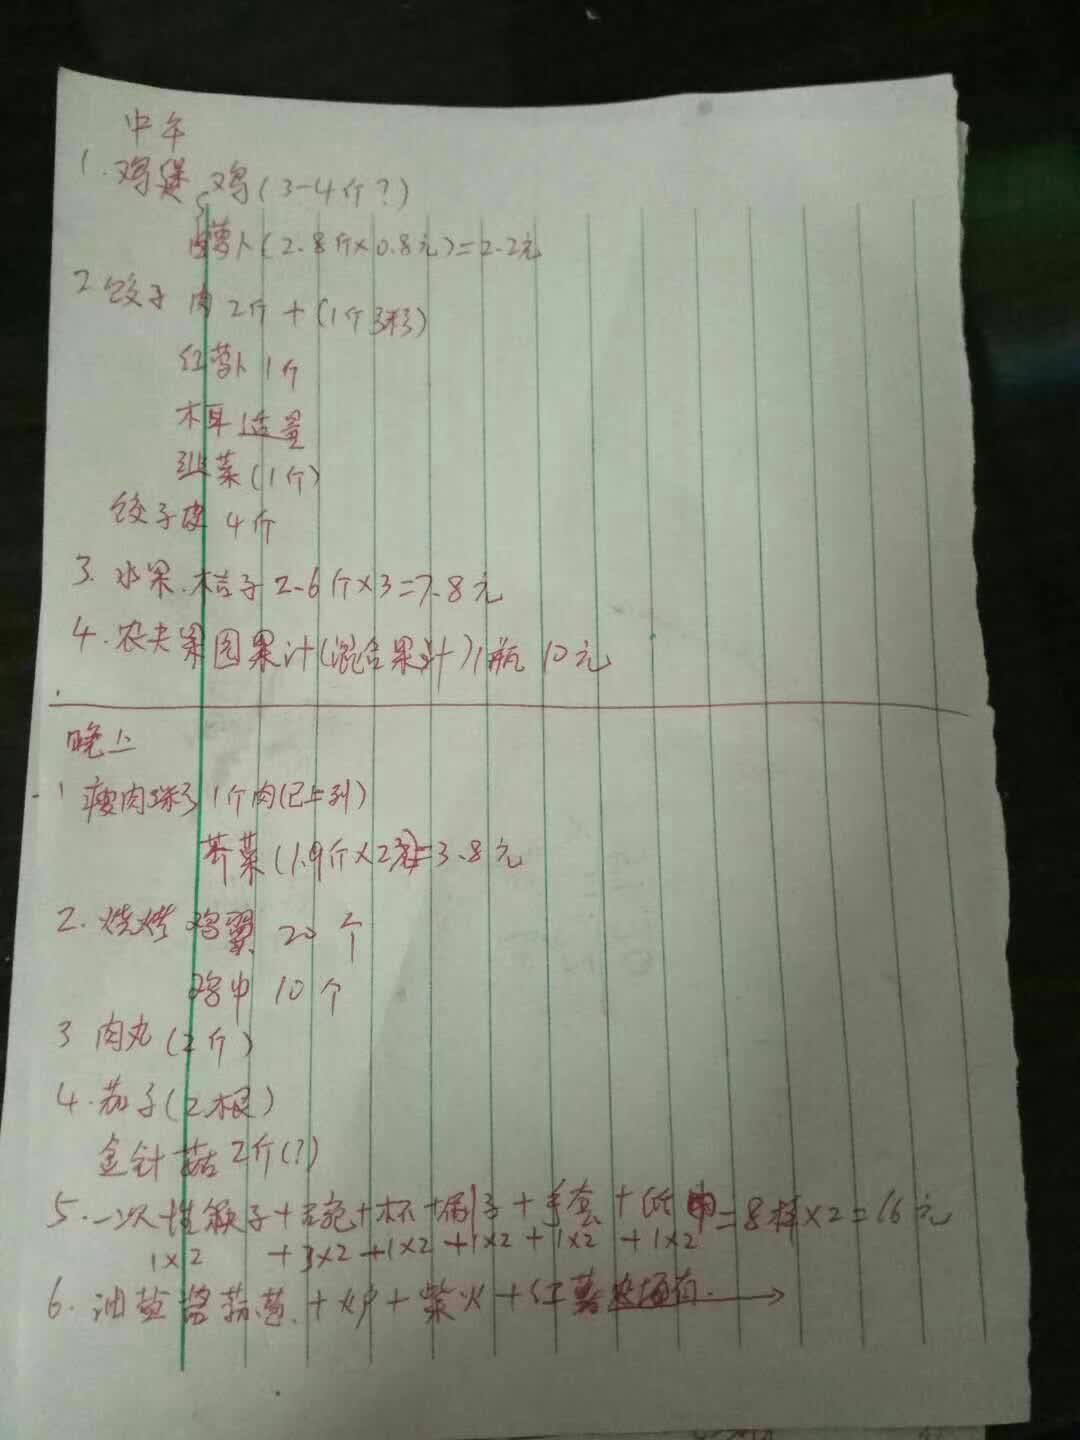 中午
1.鸡煲 鸡(3-4斤?)
萝卜(2.8斤×0.8元)=2.2元
2 饺子 肉 2斤 + (1斤)
红萝卜 1斤
木耳 适量
韭菜(1斤)
饺子皮 4斤
3. 水果.桔子 2.6斤×3=7.8元
4.农夫果园果汁(混合果汁)1瓶 10元
晚上
1 瘦肉 1斤肉(已上列)
芥菜(1.9斤×2元)=3.8元
2.烧烤 鸡翼 20 个
鸡中 10个
3 肉丸(2斤)
4.茄子(2根)
金针菇 2斤(?)
5.一次性筷子+碗+杯+刷子+手套+纸巾=8样×2=16元
1×2 +3×2+1×2+1×2+1×2+1×2
6.油盐酱蒜葱.+炉+柴火+红薯农场有.→